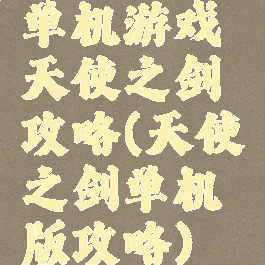 单机游戏
天使之剑
攻略(天使
之剑单机
版攻略)